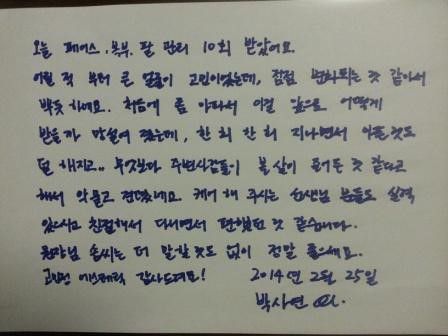 오늘 페이스, 복부, 팔 관리 10회 받았어요.
어릴 적 부터 큰 얼굴이 고민이었는데, 점점 변화되는 것 같아서
뿌듯하네요. 처음에 좀 아파서 이걸 앞으로 어떻게
받을까 망설여 졌는데, 한회 한회 지나면서 아픈것도
덜 해지고.. 무엇보다 주변사람들이 볼살이 줄어든 것 같다고
해서 악물고 견뎠네요. 케어 해 주시는 선생님 분들도 실력
있으시고 친절해서 다니면서 편했던 것 같습니다.
원장님 솜씨는 더 말할것도 없이 정말 좋으세요.
고민정 에스테틱 감사드려요!
2014년 2월 25일
박사연